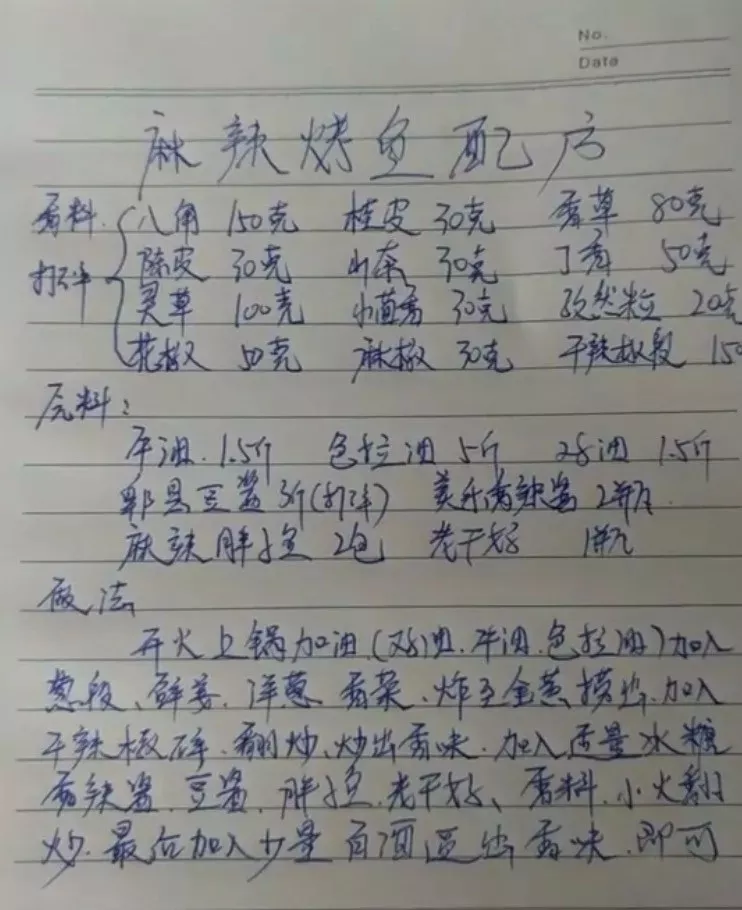 No.
Date
麻辣烤鱼配方
香料 八角 150克 桂皮 30克 香草 80克
打碎 陈皮 30克 山奈 30克 丁香 50克
灵草 100克 小茴香 30克 孜然粒 20克
花椒 50克 麻椒 30克 干辣椒段 150
原料:
牛油 1.5斤 色拉油 5斤 鸡油 1.5斤
郫县豆酱 3斤(打碎) 美乐香辣酱 2瓶
麻辣胖子鱼 2包 老干妈 1瓶
做法
开火上锅加油(鸡油、牛油、色拉油)加入
葱段、鲜姜、洋葱、香菜、炸至金黄捞出、加入
干辣椒碎、翻炒、炒出香味、加入适量冰糖
香辣酱、豆酱、胖子鱼、老干妈、香料、小火翻
炒、最后加入少量白酒逼出香味、即可